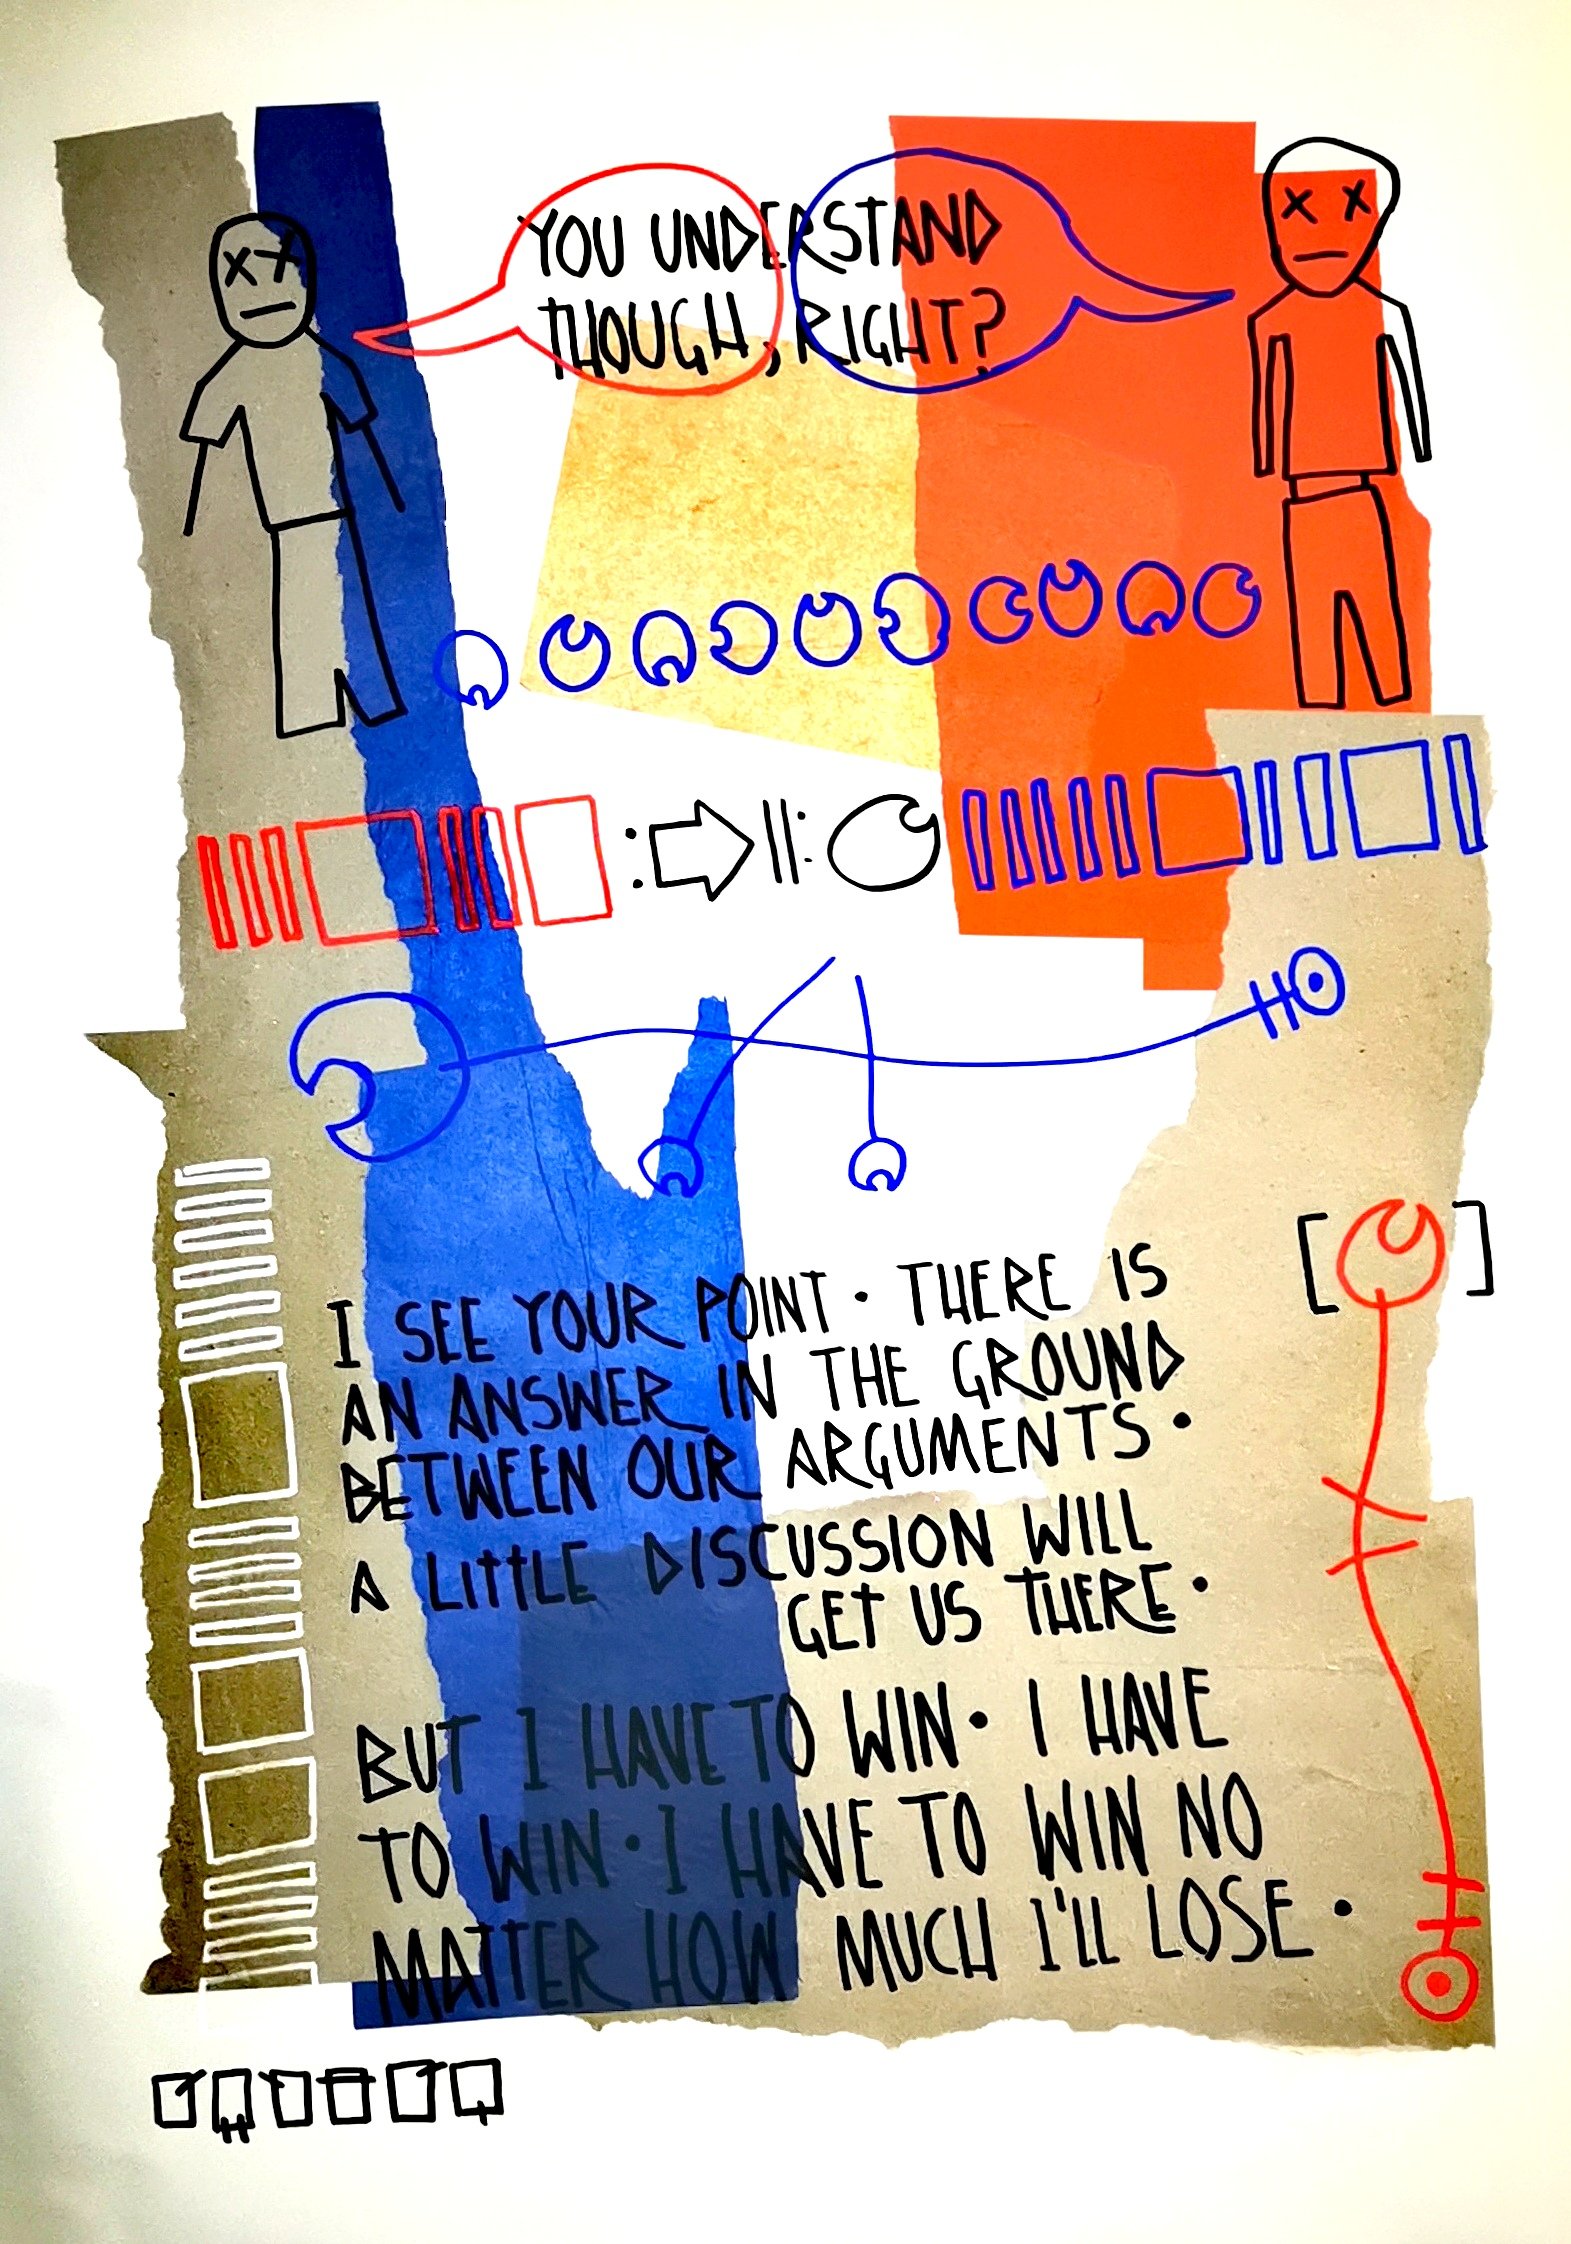 YOU UNDERSTAND
THOUGH, RIGHT?
I SEE YOUR POINT · THERE IS
AN ANSWER IN THE GROUND
BETWEEN OUR ARGUMENTS ·
A LITTLE DISCUSSION WILL
GET US THERE ·
BUT I HAVE TO WIN · I HAVE
TO WIN · I HAVE TO WIN NO
MATTER HOW MUCH I'LL LOSE ·